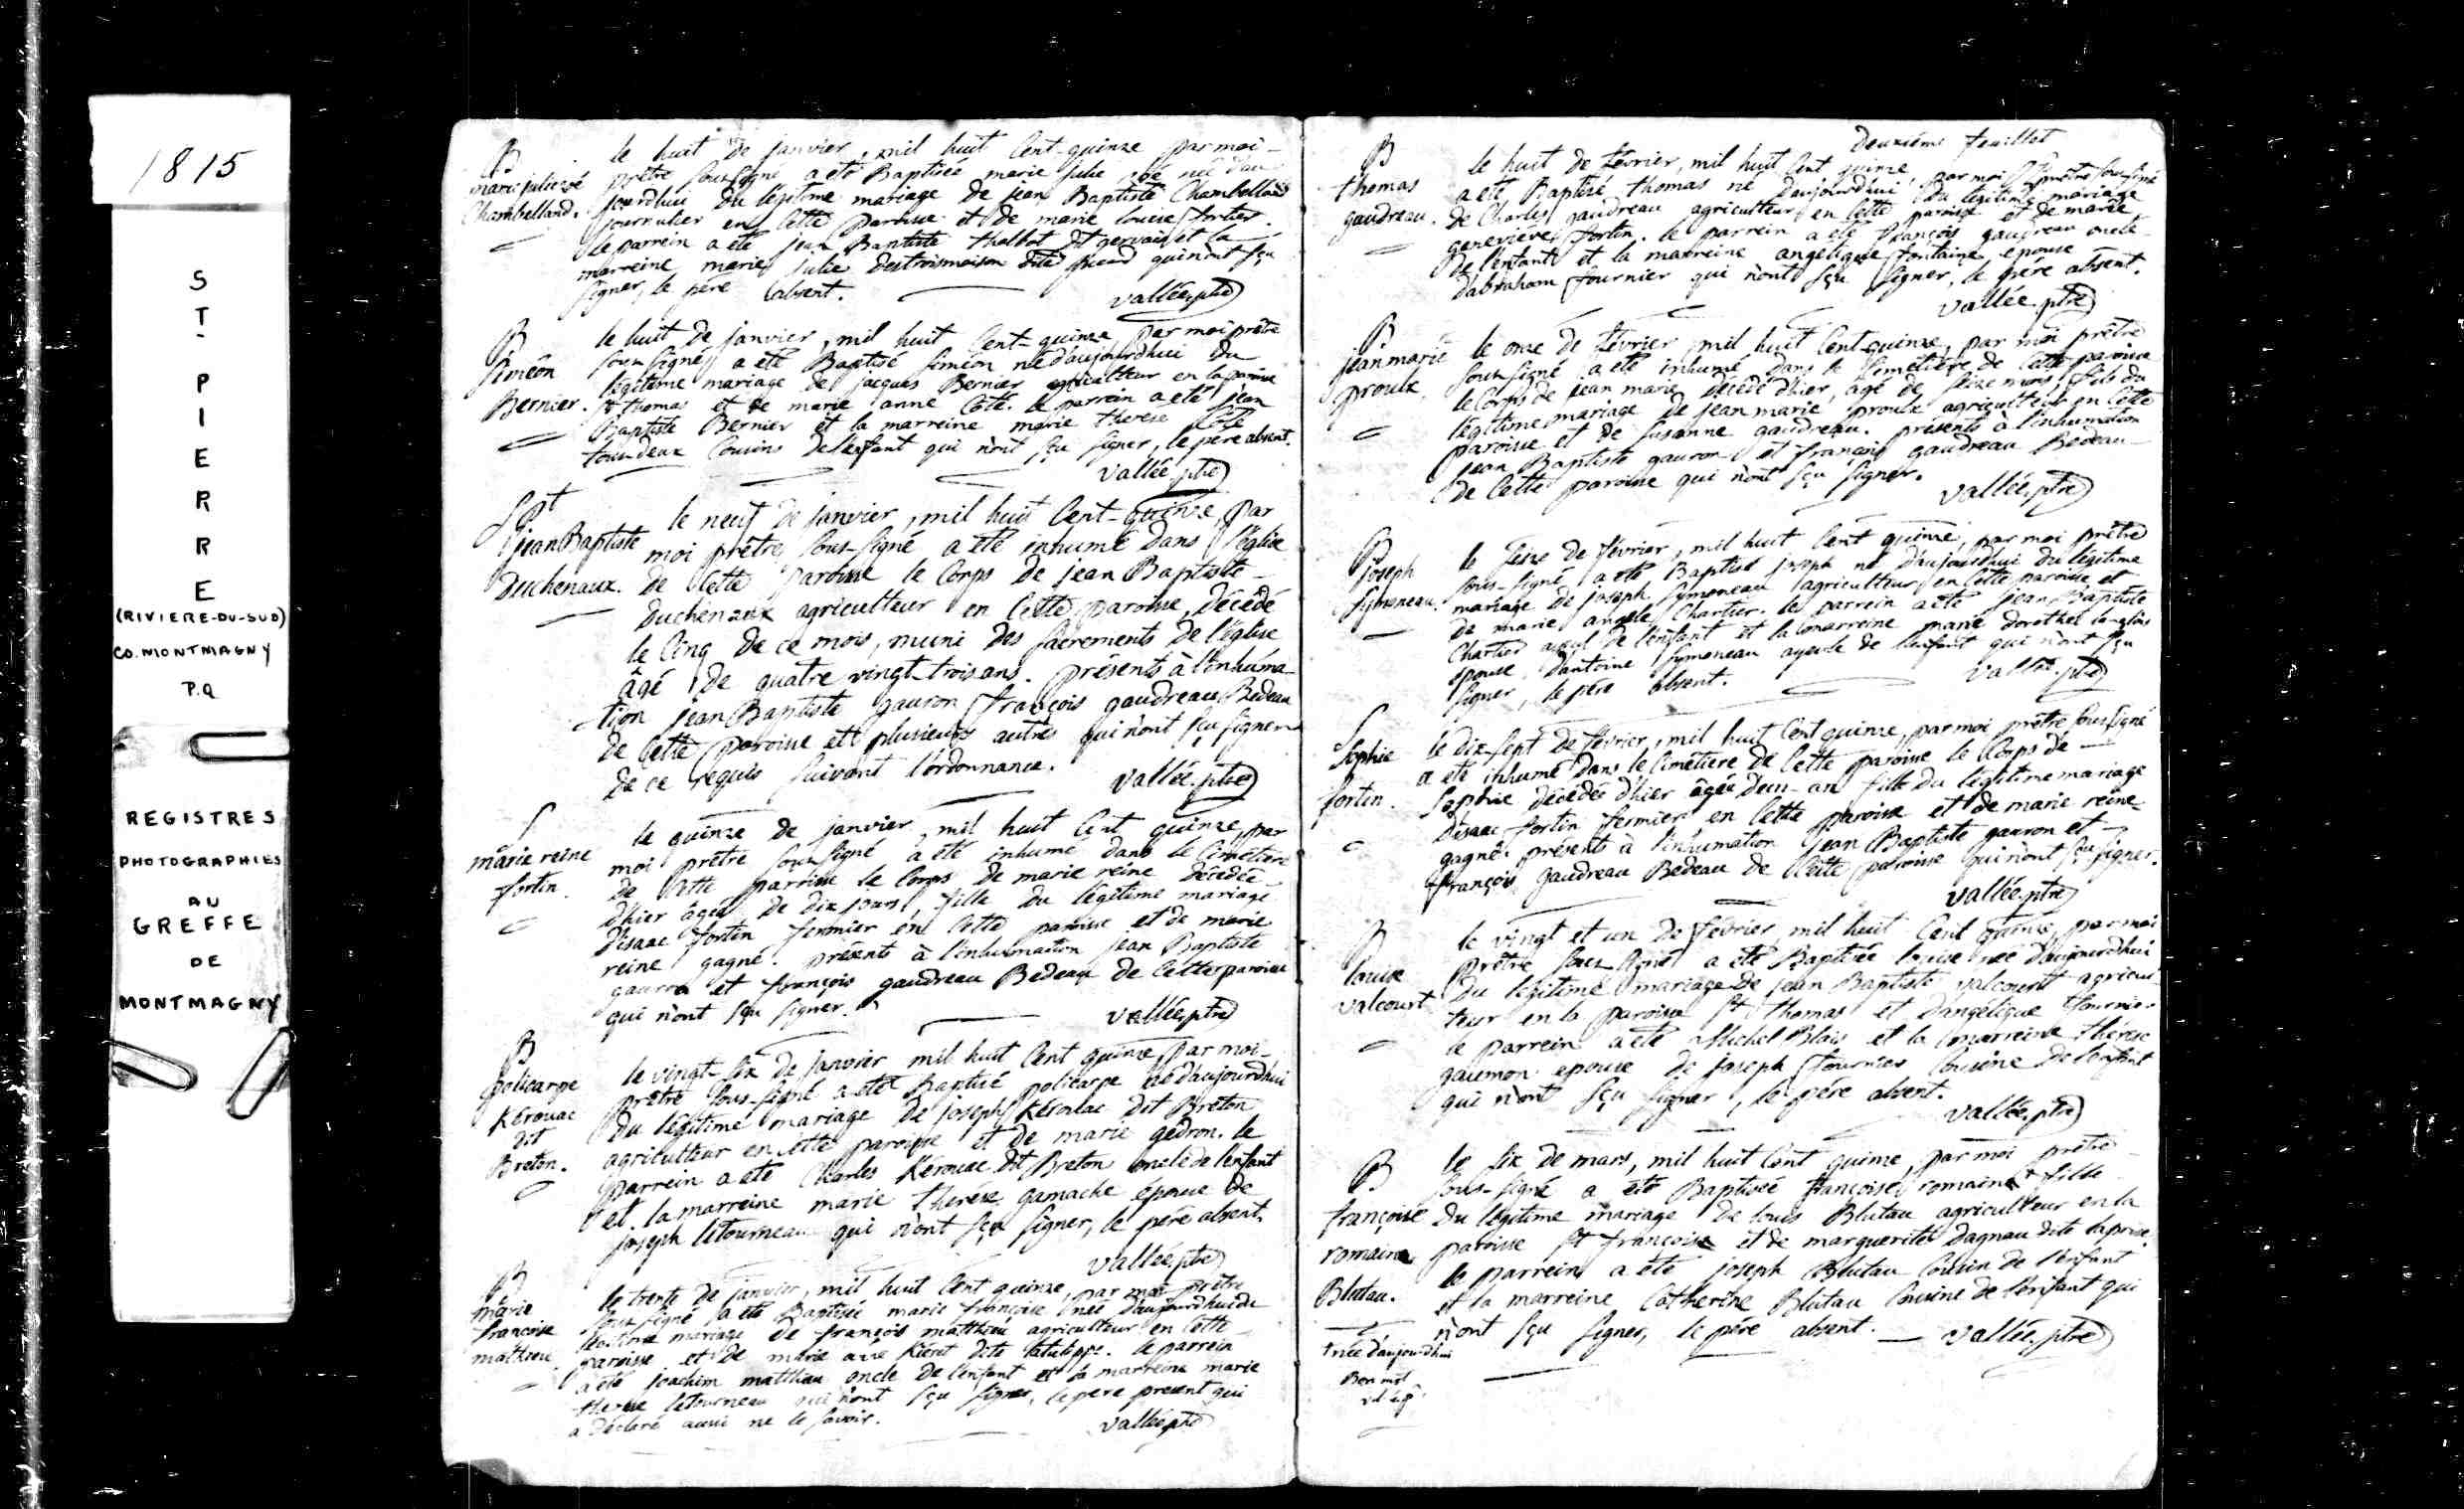 1815
ST-PIERRE
(RIVIERE-DU-SUD)
CO. MONTMAGNY
P.Q
REGISTRES
PHOTOGRAPHIÉS
AU
GREFFE
DE
MONTMAGNY
B
marie julie
Chambelland.
le huit de janvier, mil huit Cent-quinze par moi-
prêtre sous signé a été Baptisée marie julie née dau
jourdhui du légitime mariage de jean Baptiste Chambelland
journalier en Cette paroisse et de marie louise fortier.
le parrein a été jean Baptiste thalbot dit gervais et la
marreine marie julie destroismaison dite picard qui n'ont sçu
signer, le père absent.
vallée ptre
B
Siméon
Bernier.
le huit de janvier, mil huit Cent-quinze, par moi prêtre
sous signé, a été Baptisé Siméon né d'aujourdhui du
légitime mariage de jacques Bernier agriculteur en la paroisse
St thomas et de marie anne Coté. le parrein a été jean
Baptiste Bernier et la marreine marie therese Coté
tous deux Cousins de lenfant qui n'ont sçu signer, le père absent.
vallée ptre
Spt
jean Baptiste
duchenaux.
le neuf de janvier, mil huit Cent-quinze, par
moi prêtre sous-signé a été inhumé dans l'église
de Cette paroisse le Corps de jean Baptiste-
duchenaux agriculteur en Cette paroisse, décédé
le Cinq de ce mois, muni des sacrements de l'église
âgé de quatre vingt-trois ans. présents à l'inhuma-
tion jean Baptiste gauron françois gaudreau Bedeau
de Cette paroisse et plusieurs autres qui n'ont sçu signer
de ce requis suivant l'ordonnance.
vallée ptre
S
marie reine
fortin.
le quinze de janvier, mil huit Cent quinze, par
moi prêtre sous signé a été inhumé dans le Cimetiere
de Cette paroisse le Corps de marie reine décédée
d'hier âgée de dix jours, fille du légitime mariage
d'isaac fortin fermier en Cette paroisse et de marie
reine gagné. présents à l'inhumation jean Baptiste
gauron et françois gaudreau Bedeau de Cette paroisse
qui n'ont sçu signer.
vallée ptre
B
policarpe
Kérouac
dit
Breton.
le vingt-six de janvier mil huit Cent quinze, par moi-
prêtre sous-signé a été Baptisé policarpe né d'aujourdhui
du légitime mariage de joseph Kérouac dit Breton
agriculteur en Cette paroisse et de marie gedron. le
parrein a été Charles Kérouac dit Breton oncle de l'enfant
et la marreine marie therése gamache épouse de
joseph letourneau qui n'ont sçu signer, le père absent.
vallée ptre
B
marie
francoise
matthieu
le trente de janvier, mil huit Cent quinze, par moi prêtre
sous signé a été Baptisée marie françoise née d'aujourdhui du
légitime mariage de françois matthieu agriculteur en Cette
paroisse et de marie dite. le parrein
a été joachim matthieu oncle de l'enfant et la marreine marie
therese letourneau qui n'ont sçu signer, le père present qui
a déclaré aussi ne le savoir.
vallée ptre
Deuxième feuillet
B
thomas
gaudreau.
le huit de février, mil huit Cent quinze par moi prêtre sous signé
a été Baptisé thomas né daujourdhui du légitime mariage
de Charles gaudreau agriculteur en Cette paroisse et de marie
geneviéve fortin. le parrein a été françois gaudreau oncle
de l'enfant et la marreine angelique fontaine epouse
d'abraham fournier qui n'ont sçu signer, le père absent.
vallée ptre
B
jean marie
proulx.
le onze de février, mil huit Cent-quinze, par moi prêtre
sous signé a été inhumé dans le Cimetiére de Cette paroisse
le Corps de jean marie décédé d'hier, agé de seize mois, fils du
légitime mariage de jean marie proulx agriculteur en Cette
paroisse et de Susanne gaudreau. présents à l'inhumation
jean Baptiste gauron et françois gaudreau Bedeau
de Cette paroisse qui n'ont sçu signer.
vallée ptre
B
joseph
Symoneau.
le seize de février, mil huit Cent quinze, par moi prêtre
sous-signé a été Baptisé joseph né d'aujourdhui du légitime
mariage de joseph Symoneau agriculteur en Cette paroisse et
de marie angele Chartier. le parrein a été jean Baptiste
Chartier ayeul de l'enfant et la marreine marie dorothée langlois
épouse d'antoine Symoneau ayeule de l'enfant qui n'ont sçu
signer, le père absent.
vallée ptre
S
Sophie
fortin.
le dix-sept de février, mil huit Cent quinze, par moi prêtre sous signé
a été inhumé dans le Cimetiere de Cette paroisse le Corps de
Sophie décédée d'hier âgée d'un an fille du légitime mariage
d'isaac fortin fermier en Cette paroisse et de marie reine-
gagné. présents à l'inhumation jean Baptiste gauron et
françois gaudreau Bedeau de Cette paroisse qui n'ont sçu signer.
vallée ptre
B
louise
valcourt
le vingt et un de février, mil huit Cent quinze, par moi
prêtre sous signé a été Baptisée louise née d'aujourdhui
du légitime mariage de jean Baptiste valcourt agricul
teur en la paroisse St thomas et d'angélique fournier
le parrein a été Michel Blais et la marreine thérese
gaumon epouse de joseph fournier Cousine de l'enfant
qui n'ont sçu signer, le père absent.
vallée ptre
B
françoise
romaine
Blutau.
le six de mars, mil huit Cent quinze, par moi prêtre
sous-signé a été Baptisée françoise romaine + fille
du légitime mariage de louis Blutau agriculteur en la
paroisse St françoise et de marguerite dagnau dite laprise.
le parrein a été joseph Blutau Cousin de l'enfant
et la marreine Catherine Blutau Cousine de l'enfant qui
n'ont sçu signer, le père absent.
vallée ptre
+ née d'aujourdhui
Bon mot